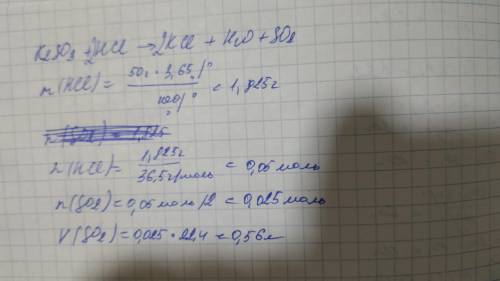 K₂SO₃ + 2HCl → 2KCl + H₂O + SO₂
m(HCl) = 50г · 3,65% / 100% = 1,825г
n(HCl) = 1,825г / 36,5г/моль = 0,05 моль
n(SO₂) = 0,05 моль/2 = 0,025 моль
V(SO₂) = 0,025 · 22,4 = 0,56л